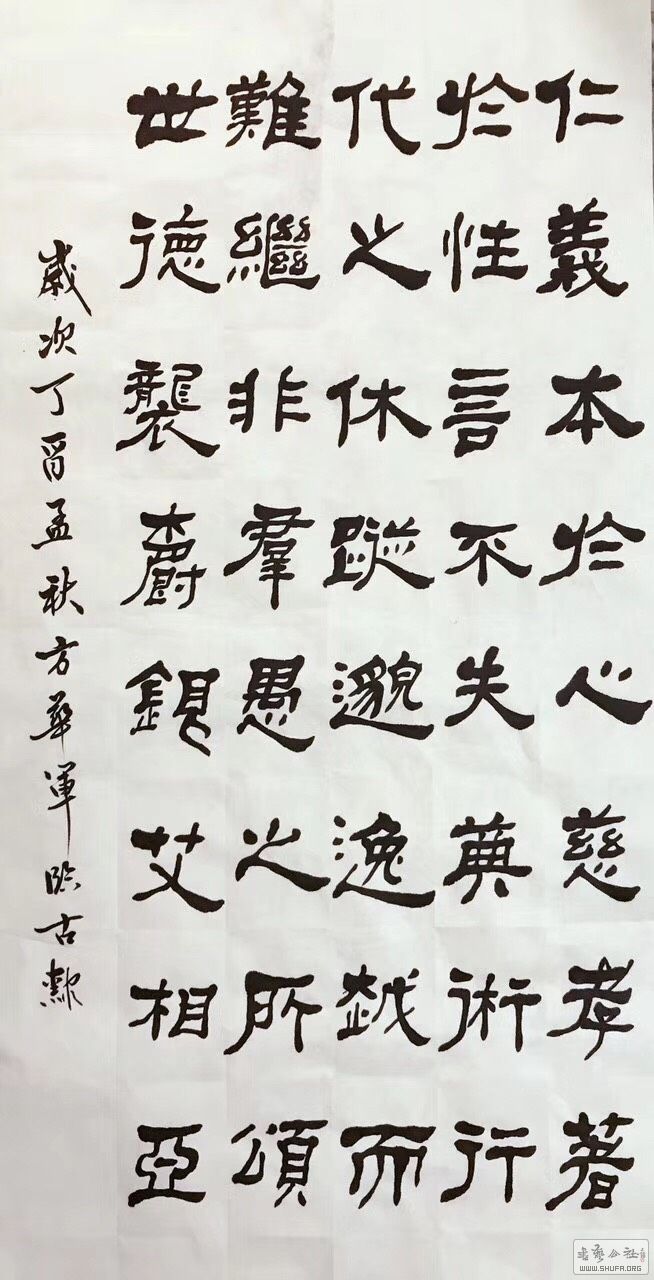 仁義本於心慈孝著
於性言不失典術行
代之休蹤邈逸越而
難繼非羣愚之所頌
世德襲爵銀艾相亞
歲次丁酉孟秋方華軍臨古歙
书艺公社
WWW.SHUFA.ORG